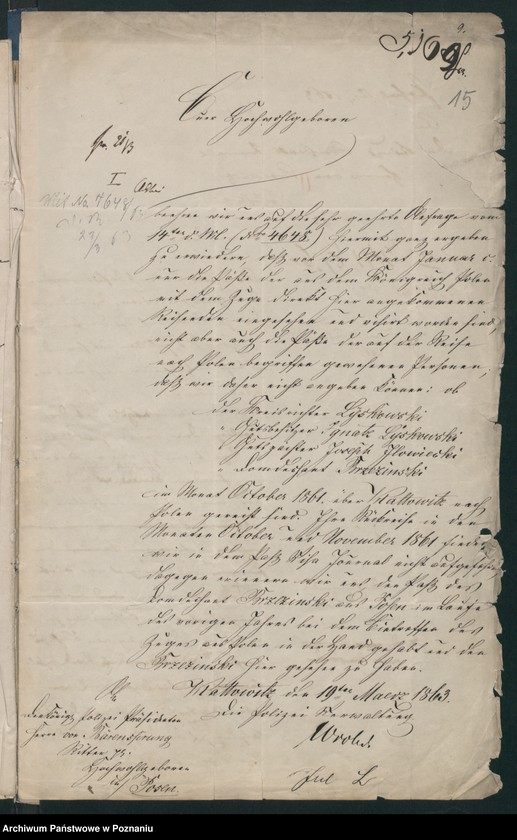 9.
5,169
15
Euer Hochwohlgeboren
pr. 21/3
I
beehren wir uns auf die sehr geehrte Anfrage vom
14ten d. M. (No 4648.) hiermit ganz ergebenst
zu erwiedern, daß vor dem Monat Januar c.
nur die Päße der aus dem Königreich Polen
mit dem Zuge direkt hier angekommenen
Reisenden eingesehen und visirt worden sind,
nicht aber auch die Päße der auf der Reise
nach Polen begriffen gewesenen Personen,
daß wir daher nicht angeben können: ob
der Kreisrichter Lyskowski
" Gutsbesitzer Ignatz Lyskowski
" Gutspächter Joseph Ilowiecki
" Domdechant Brzezinski
im Monat October 1861. über Kattowitz nach
Polen gereist sind. Ihre Rückreise in den
Monaten October und November 1861 finden
wir in dem Paß Visa Journal nicht aufgeführt,
dagegen erinnern wir uns den Paß des
Domdechant Brzezinski aus im Laufe
des vorigen Jahres bei dem Eintreffen des
Zuges aus Polen in der Hand gehabt und den
Brzezinski hier gesehen zu haben.
Kattowitz den 19ten Maerz 1863.
Die Polizei Verwaltung
An
den Königl. Polizei Präsidenten
Herrn von Bärensprung
Ritter pp.
Hochwohlgeboren
in Posen
Archiwum Państwowe w Poznaniu